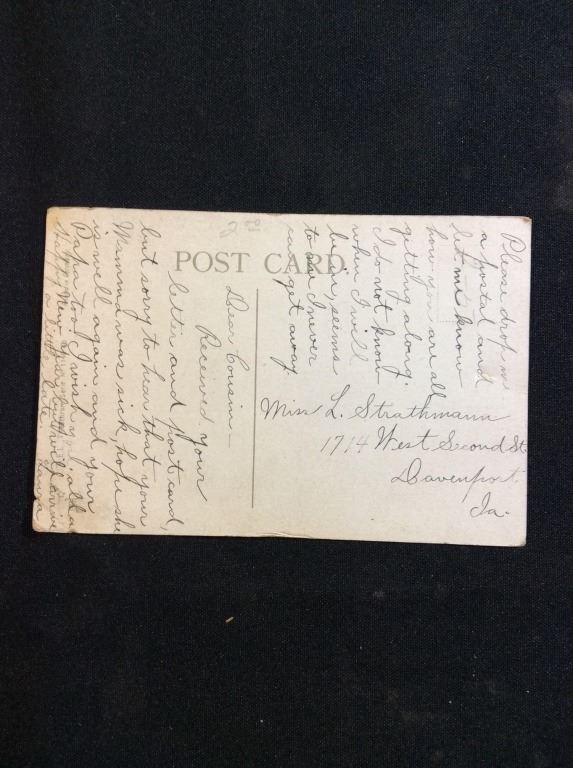 POST CARD
Dear Cousin—
Received your
letter and post card,
but sorry to hear that your
Mamma was sick, hope she
is well again and your
Papa too. I wish you all a
happy New
a little late. Laura
Please drop me
a postal and
let me know
how you are all
getting along.
I do not know
when I will
be in, seems
to me I never
can get away.
Miss L. Strathmann
1714 West Second St.
Davenport
Ia.